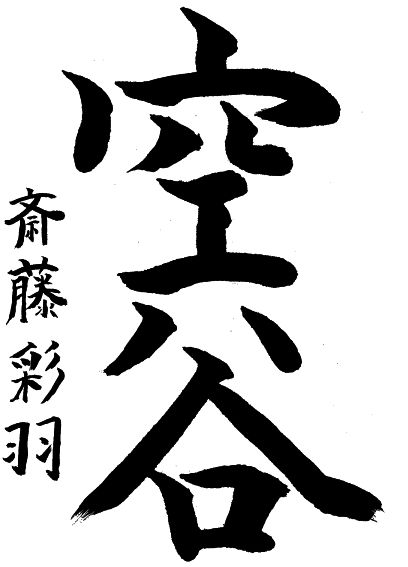 空谷
斎藤彩羽